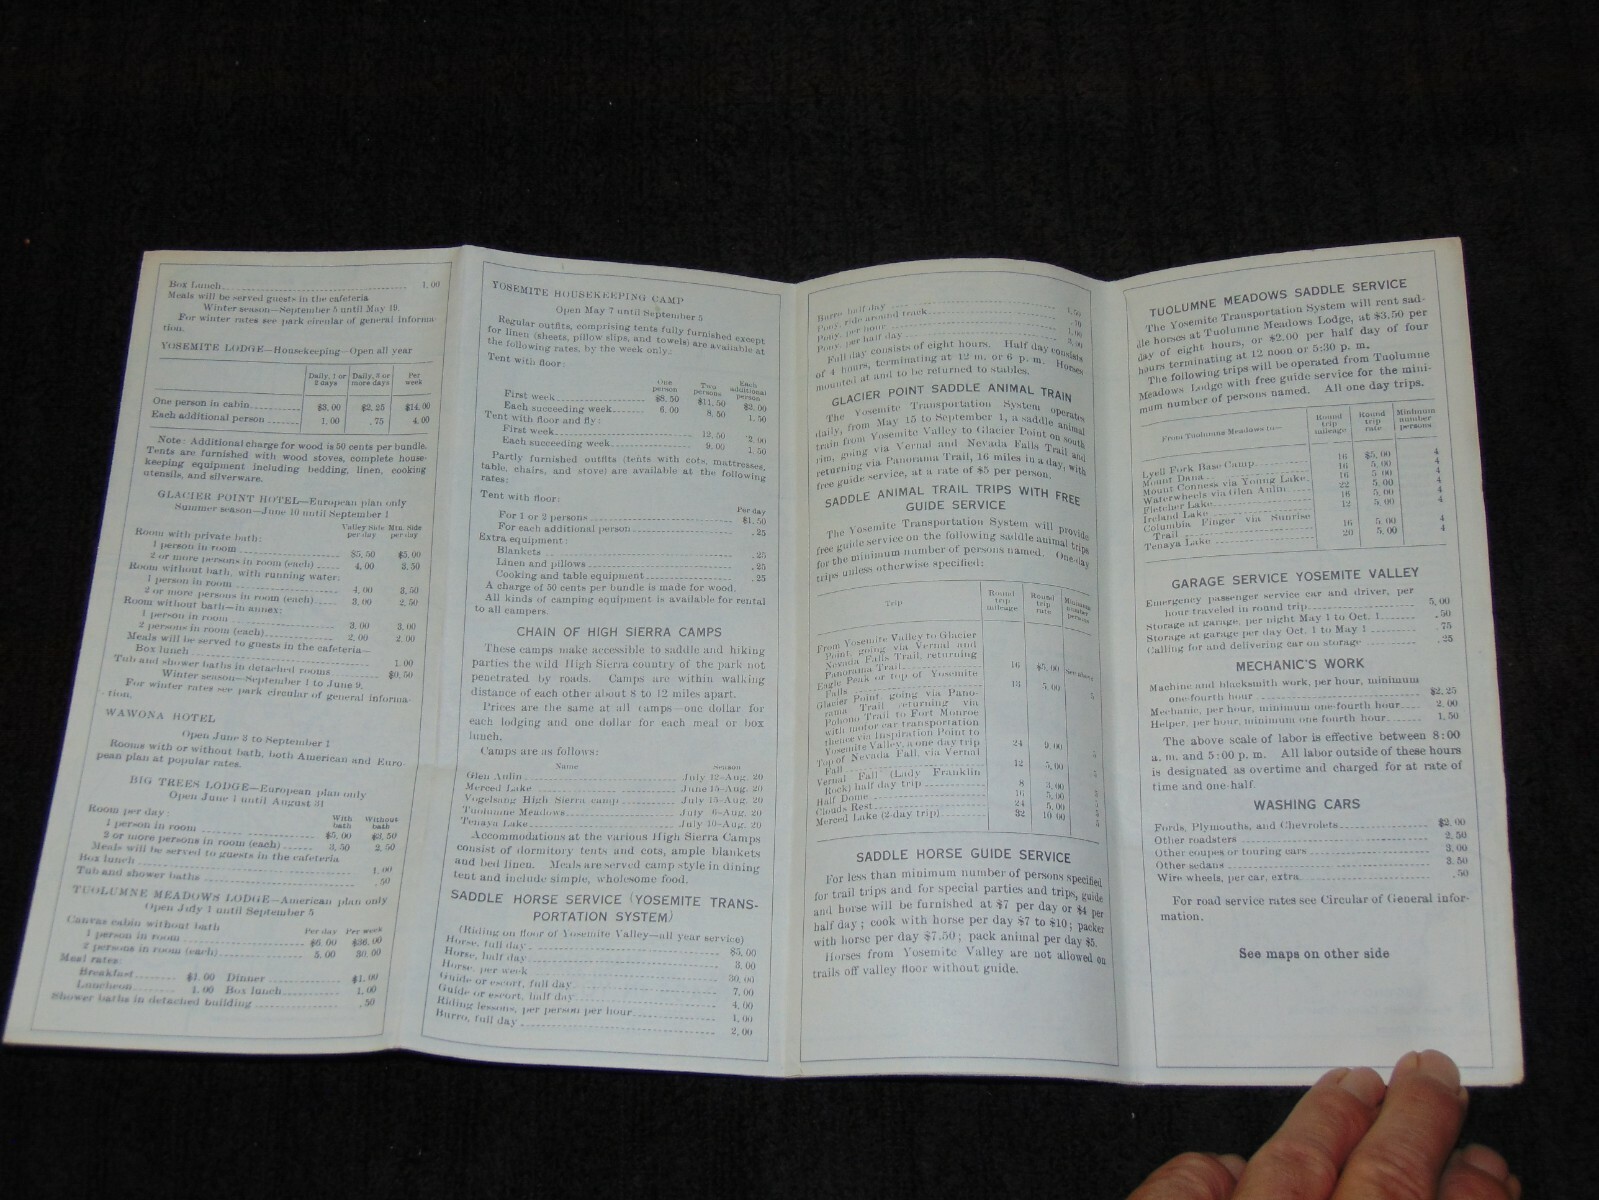 Box Lunch 1.00
Meals will be served guests in the cafeteria
Winter season—September 5 until May 19.
For winter rates see park circular of general informa-
tion.
YOSEMITE LODGE—Housekeeping—Open all year
Daily, 1 or 2 days Daily, 3 or more days Per week
One person in cabin $3.00 $2.25 $14.00
Each additional person 1.00 .75 4.00
Note: Additional charge for wood is 50 cents per bundle.
Tents are furnished with wood stoves, complete house-
keeping equipment including bedding, linen, cooking
utensils, and silverware.
GLACIER POINT HOTEL—European plan only
Summer season—June 10 until September 1
Valley Side per day Mtn. Side per day
Room with private bath:
1 person in room $5.50 $5.00
2 or more persons in room (each) 4.00 3.50
Room without bath, with running water:
1 person in room 4.00 3.50
2 or more persons in room (each) 3.00 2.50
Room without bath—in annex:
1 person in room 3.00 3.00
2 persons in room (each) 2.00 2.00
Meals will be served to guests in the cafeteria—
Box lunch 1.00
Tub and shower baths in detached rooms $0.50
Winter season—September 1 to June 9.
For winter rates see park circular of general informa-
tion.
WAWONA HOTEL
Open June 3 to September 1
Rooms with or without bath, both American and Euro-
pean plan at popular rates.
BIG TREES LODGE—European plan only
Open June 1 until August 31
Room per day: With bath Without bath
1 person in room $5.00 $3.50
2 or more persons in room (each) 3.50 2.50
Meals will be served to guests in the cafeteria
Box lunch 1.00
Tub and shower baths .50
TUOLUMNE MEADOWS LODGE—American plan only
Open July 1 until September 5
Canvas cabin without bath Per day Per week
1 person in room $6.00 $36.00
2 persons in room (each) 5.00 30.00
Meal rates:
Breakfast $1.00 Dinner $1.00
Luncheon 1.00 Box lunch 1.00
Shower baths in detached building .50
YOSEMITE HOUSEKEEPING CAMP
Open May 7 until September 5
Regular outfits, comprising tents fully furnished except
for linen (sheets, pillow slips, and towels) are available at
the following rates, by the week only:
Tent with floor:
One person Two persons Each additional person
First week $8.50 $11.50 $3.00
Each succeeding week 6.00 8.50 1.50
Tent with floor and fly:
First week 12.50 2.00
Each succeeding week 9.00 1.50
Partly furnished outfits (tents with cots, mattresses,
table, chairs, and stove) are available at the following
rates:
Tent with floor: Per day
For 1 or 2 persons $1.50
For each additional person .25
Extra equipment:
Blankets .25
Linen and pillows .25
Cooking and table equipment .25
A charge of 50 cents per bundle is made for wood.
All kinds of camping equipment is available for rental
to all campers.
CHAIN OF HIGH SIERRA CAMPS
These camps make accessible to saddle and hiking
parties the wild High Sierra country of the park not
penetrated by roads. Camps are within walking
distance of each other about 8 to 12 miles apart.
Prices are the same at all camps—one dollar for
each lodging and one dollar for each meal or box
lunch.
Camps are as follows:
Name Season
Glen Aulin July 12-Aug. 20
Merced Lake June 15-Aug. 20
Vogelsang High Sierra camp July 15-Aug. 20
Tuolumne Meadows July 6-Aug. 20
Tenaya Lake July 10-Aug. 20
Accommodations at the various High Sierra Camps
consist of dormitory tents and cots, ample blankets
and bed linen. Meals are served camp style in dining
tent and include simple, wholesome food.
SADDLE HORSE SERVICE (YOSEMITE TRANS-
PORTATION SYSTEM)
(Riding on floor of Yosemite Valley—all year service)
Horse, full day $5.00
Horse, half day 3.00
Horse per week 30.00
Guide or escort, full day 7.00
Guide or escort, half day 4.00
Riding lessons, per person per hour 1.00
Burro, full day 2.00
Burro, half day 1.50
Pony, ride around track
Pony, per hour 1.00
Pony, per half day
Full day consists of eight hours. Half day consists
of 4 hours, terminating at 12 m. or 6 p. m. Horses
mounted at and to be returned to stables.
GLACIER POINT SADDLE ANIMAL TRAIN
The Yosemite Transportation System operates
daily, from May 15 to September 1, a saddle animal
train from Yosemite Valley to Glacier Point on south
rim, going via Vernal and Nevada Falls Trail and
returning via Panorama Trail, 16 miles in a day, with
free guide service, at a rate of $5 per person.
SADDLE ANIMAL TRAIL TRIPS WITH FREE
GUIDE SERVICE
The Yosemite Transportation System will provide
free guide service on the following saddle animal trips
for the minimum number of persons named. One-day
trips unless otherwise specified:
Trip Round trip mileage Round trip rate Minimum number persons
From Yosemite Valley to Glacier
Point, going via Vernal and
Nevada Falls Trail, returning
Panorama Trail 16 $5.00
Eagle Peak or top of Yosemite
Falls 13 5.00
Glacier Point, going via Pano-
rama Trail returning via
Pohono Trail to Fort Monroe
with motor car transportation
thence via Inspiration Point to
Yosemite Valley, a one day trip 24 9.00
Top of Nevada Fall, via Vernal
Fall 12 5.00
Vernal Fall (Lady Franklin
Rock) half day trip 8 3.00
Half Dome 16 5.00
Clouds Rest 24 5.00
Merced Lake (2-day trip) 32 10.00
SADDLE HORSE GUIDE SERVICE
For less than minimum number of persons specified
for trail trips and for special parties and trips, guide
and horse will be furnished at $7 per day or $4 per
half day; cook with horse per day $7 to $10; packer
with horse per day $7.50; pack animal per day $5.
Horses from Yosemite Valley are not allowed on
trails off valley floor without guide.
TUOLUMNE MEADOWS SADDLE SERVICE
The Yosemite Transportation System will rent sad-
dle horses at Tuolumne Meadows Lodge, at $3.50 per
day of eight hours, or $2.00 per half day of four
hours terminating at 12 noon or 5:30 p. m.
The following trips will be operated from Tuolumne
Meadows Lodge with free guide service for the mini-
mum number of persons named. All one day trips.
From Tuolumne Meadows to— Round trip mileage Round trip rate Minimum number persons
Lyell Fork Base Camp 16 $5.00 4
Mount Dana 16 5.00 4
Mount Conness via Young Lake 16 5.00 4
Waterwheels via Glen Aulin 22 5.00 4
Fletcher Lake 16 5.00 4
Ireland Lake 12 5.00 4
Columbia Finger via Sunrise
Trail 16 5.00 4
Tenaya Lake 20 5.00 4
GARAGE SERVICE YOSEMITE VALLEY
Emergency passenger service car and driver, per
hour traveled in round trip 5.00
Storage at garage, per night May 1 to Oct. 1 .50
Storage at garage per day Oct. 1 to May 1 .75
Calling for and delivering car on storage .25
MECHANIC'S WORK
Machine and blacksmith work, per hour, minimum
one-fourth hour $2.25
Mechanic, per hour, minimum one-fourth hour 2.00
Helper, per hour, minimum one fourth hour 1.50
The above scale of labor is effective between 8:00
a. m. and 5:00 p. m. All labor outside of these hours
is designated as overtime and charged for at rate of
time and one-half.
WASHING CARS
Fords, Plymouths, and Chevrolets $2.00
Other roadsters 2.50
Other coupes or touring cars 3.00
Other sedans 3.50
Wire wheels, per car, extra .50
For road service rates see Circular of General infor-
mation.
See maps on other side